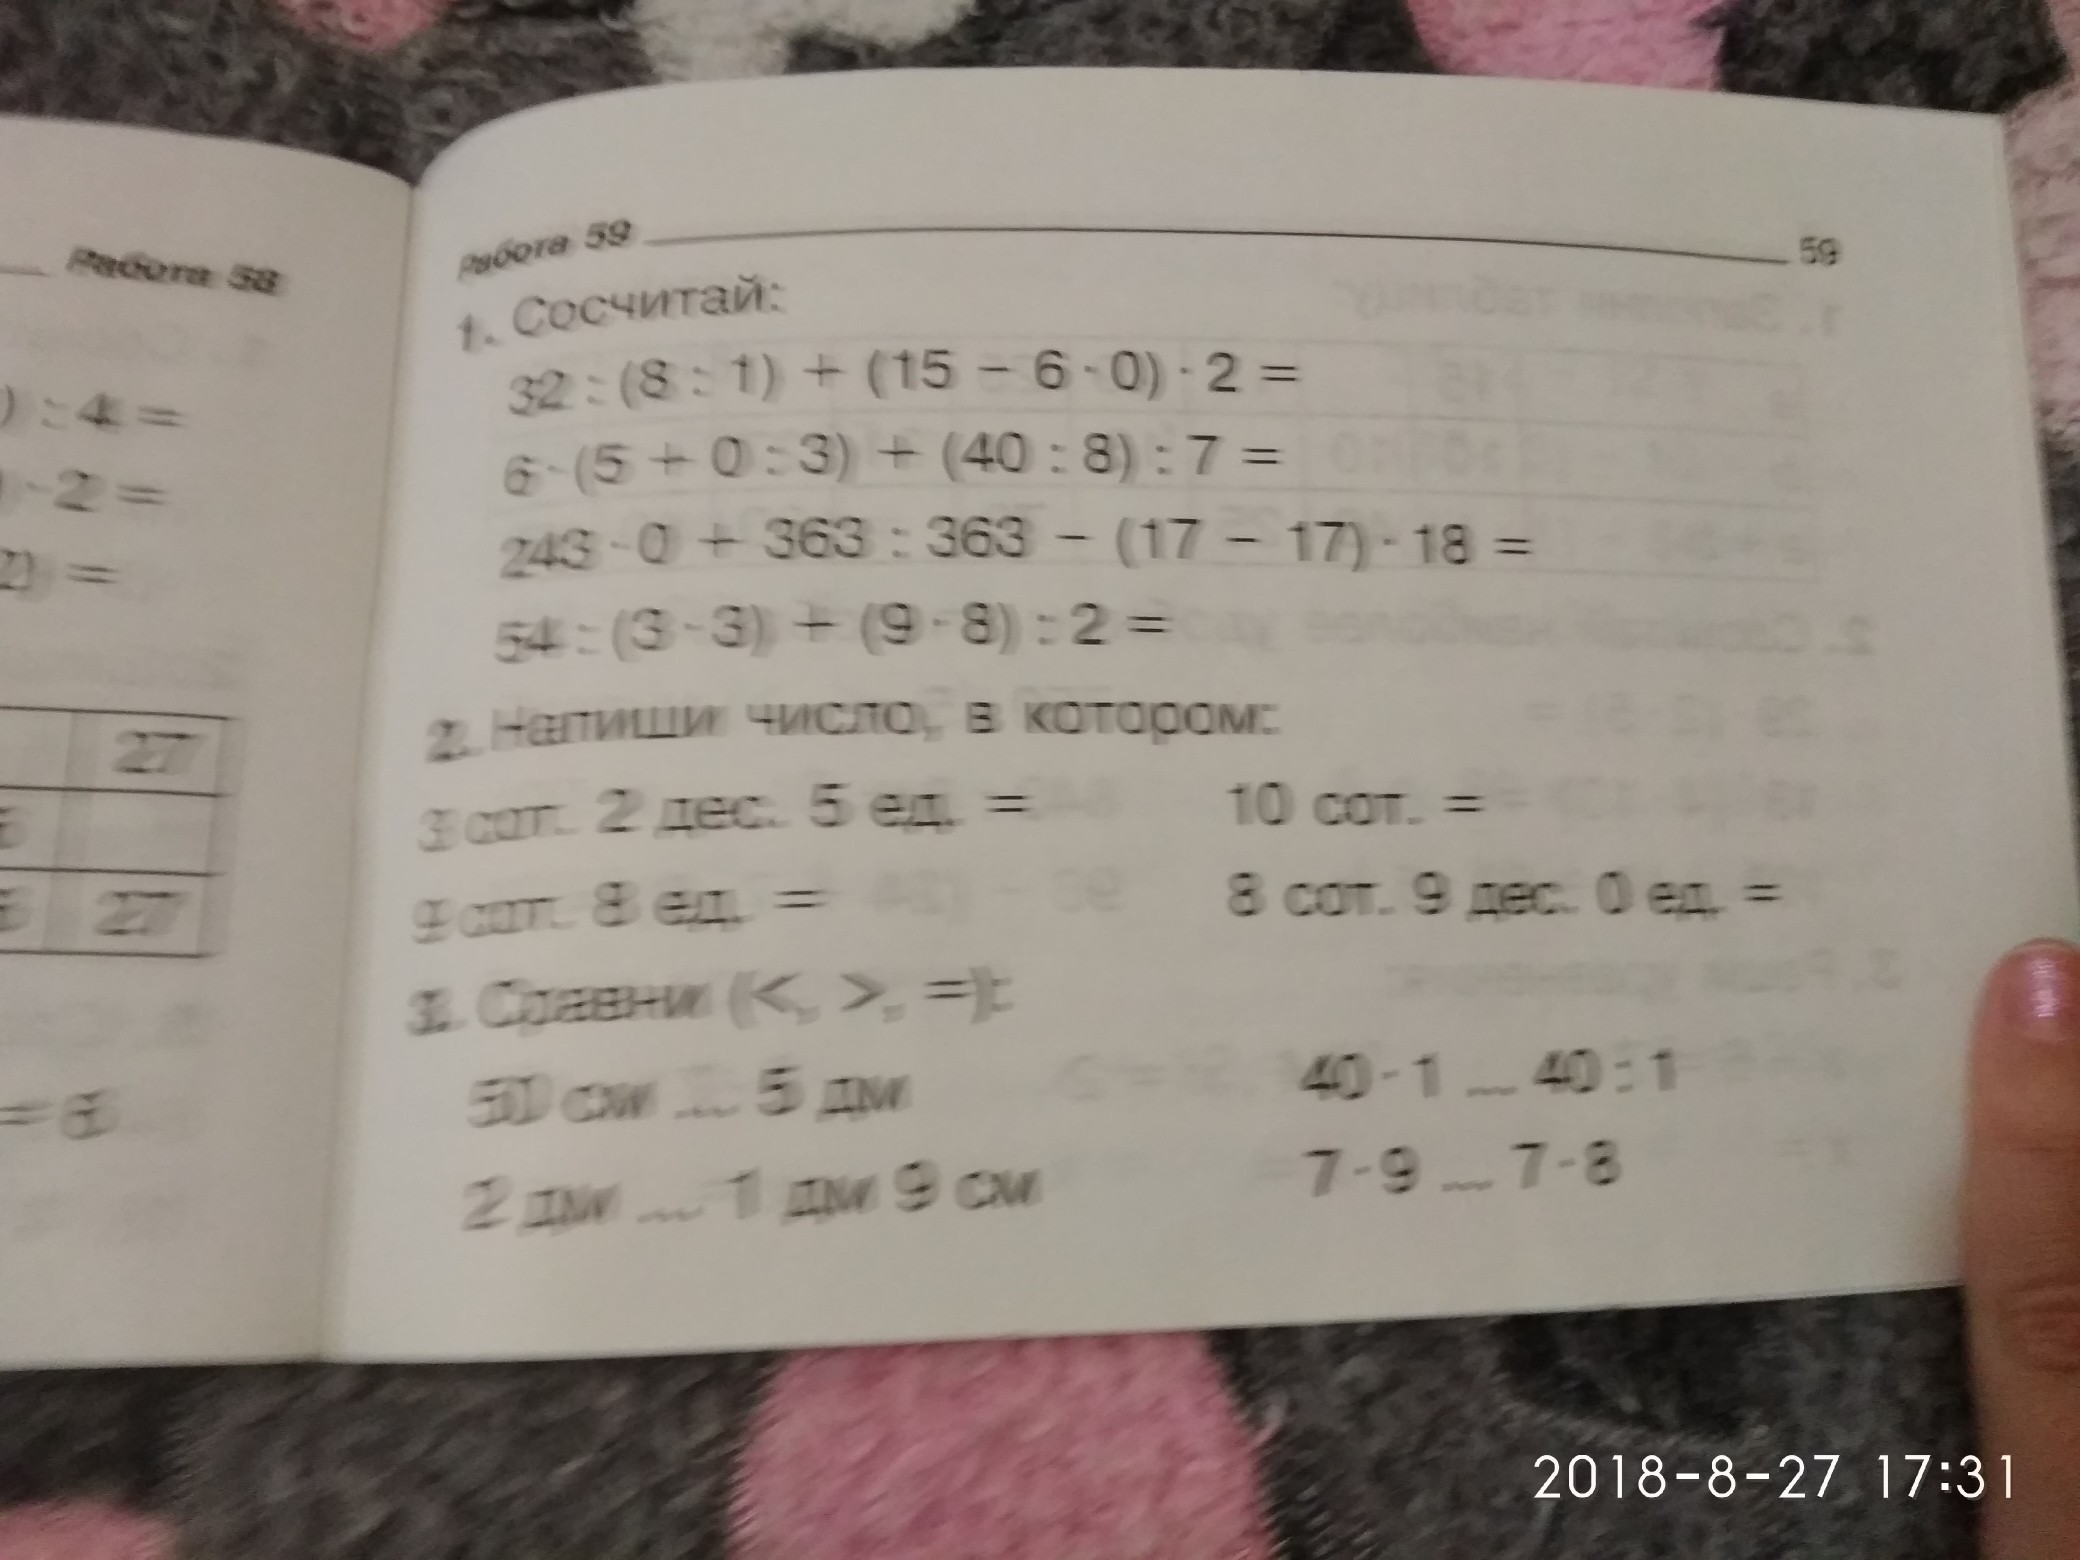 Работа 58
) : 4 =
) · 2 =
2) =
27
27
= 6
Работа 59 59
1. Сосчитай:
32 : (8 : 1) + (15 − 6 · 0) · 2 =
6 · (5 + 0 : 3) + (40 : 8) : 7 =
243 · 0 + 363 : 363 − (17 − 17) · 18 =
54 : (3 · 3) + (9 · 8) : 2 =
2. Напиши число, в котором:
3 сот. 2 дес. 5 ед. = 10 сот. =
9 сот. 8 ед. = 8 сот. 9 дес. 0 ед. =
3. Сравни (<, >, =):
50 см ... 5 дм 40 · 1 ... 40 : 1
2 дм ... 1 дм 9 см 7 · 9 ... 7 · 8
2018-8-27 17:31